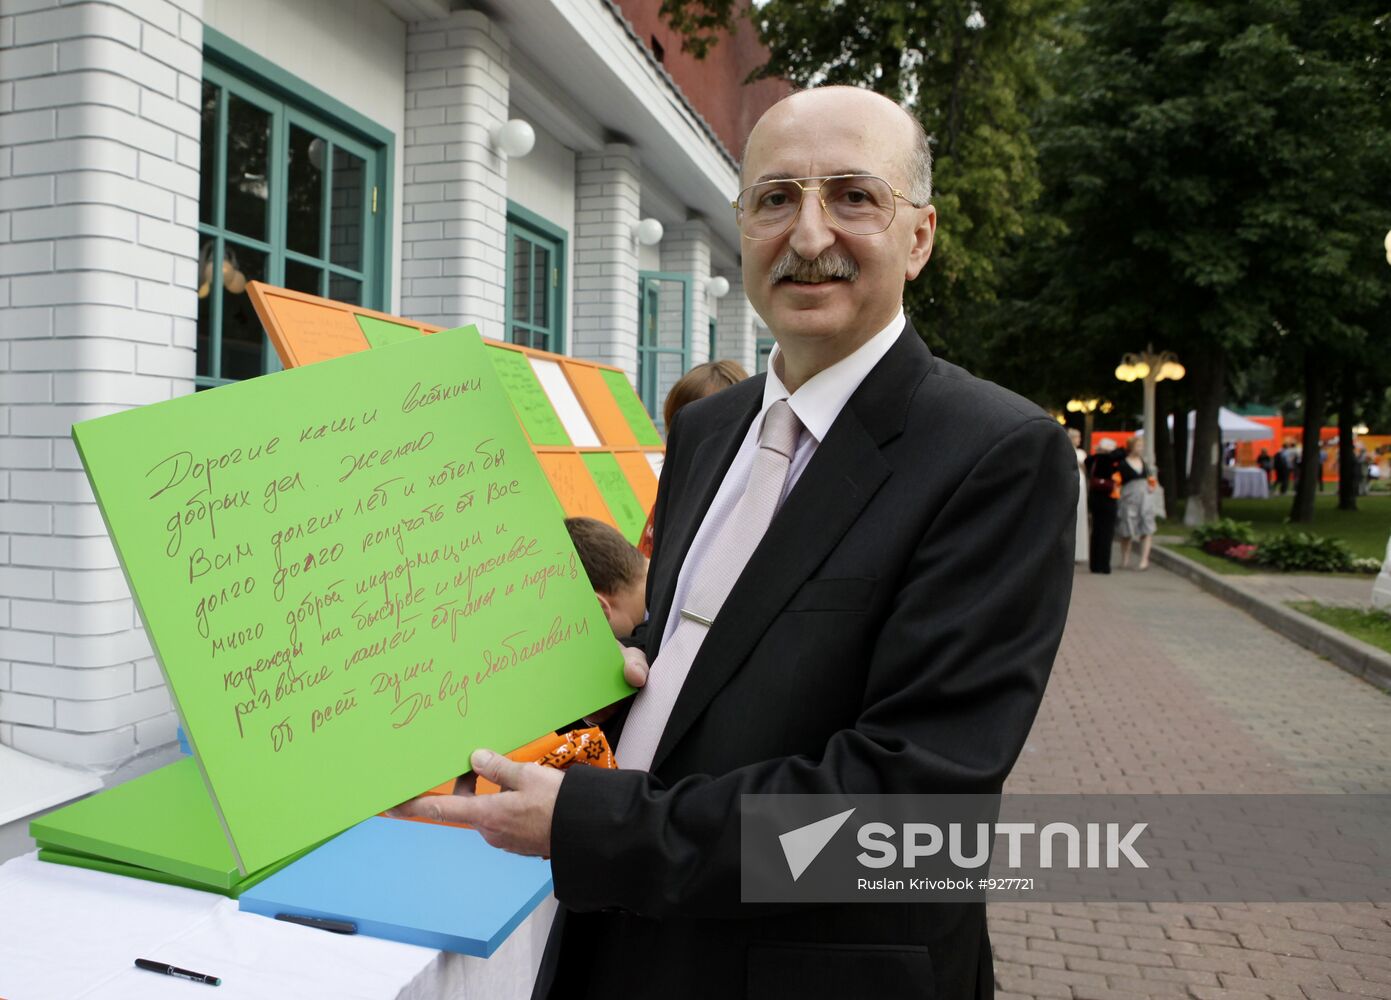 Дорогие наши вестники
добрых дел. Желаю
Вам долгих лет и хотел бы
долго долго получать от Вас
много доброй информации и
надежды на быстрое и красивое
развитие нашей страны и людей в
от всей души
Давид Якобашвили
SPUTNIK
Ruslan Krivobok #927721